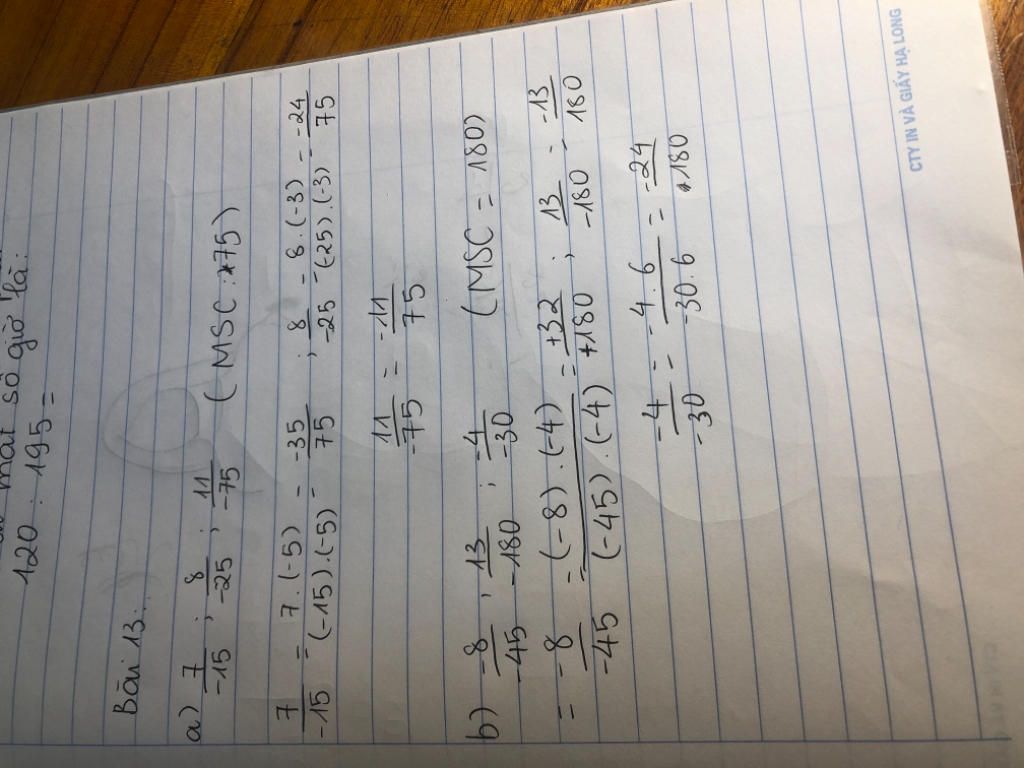 mất số giờ là:
120 : 195 =
Bài 13:
a) 7/-15 ; 8/-25 ; 11/-75 (MSC: 75)
7/-15 = 7.(-5)/(-15).(-5) = -35/75 ; 8/-25 = 8.(-3)/(-25).(-3) = -24/75
11/-75 = -11/75
b) -8/-45 ; 13/-180 ; -4/-30 (MSC = 180)
= -8/-45 = (-8).(-4)/(-45).(-4) = +32/+180 ; 13/-180 = -13/180
-4/-30 = -4.6/-30.6 = -24/180
CTY IN VÀ GIẤY HẠ LONG